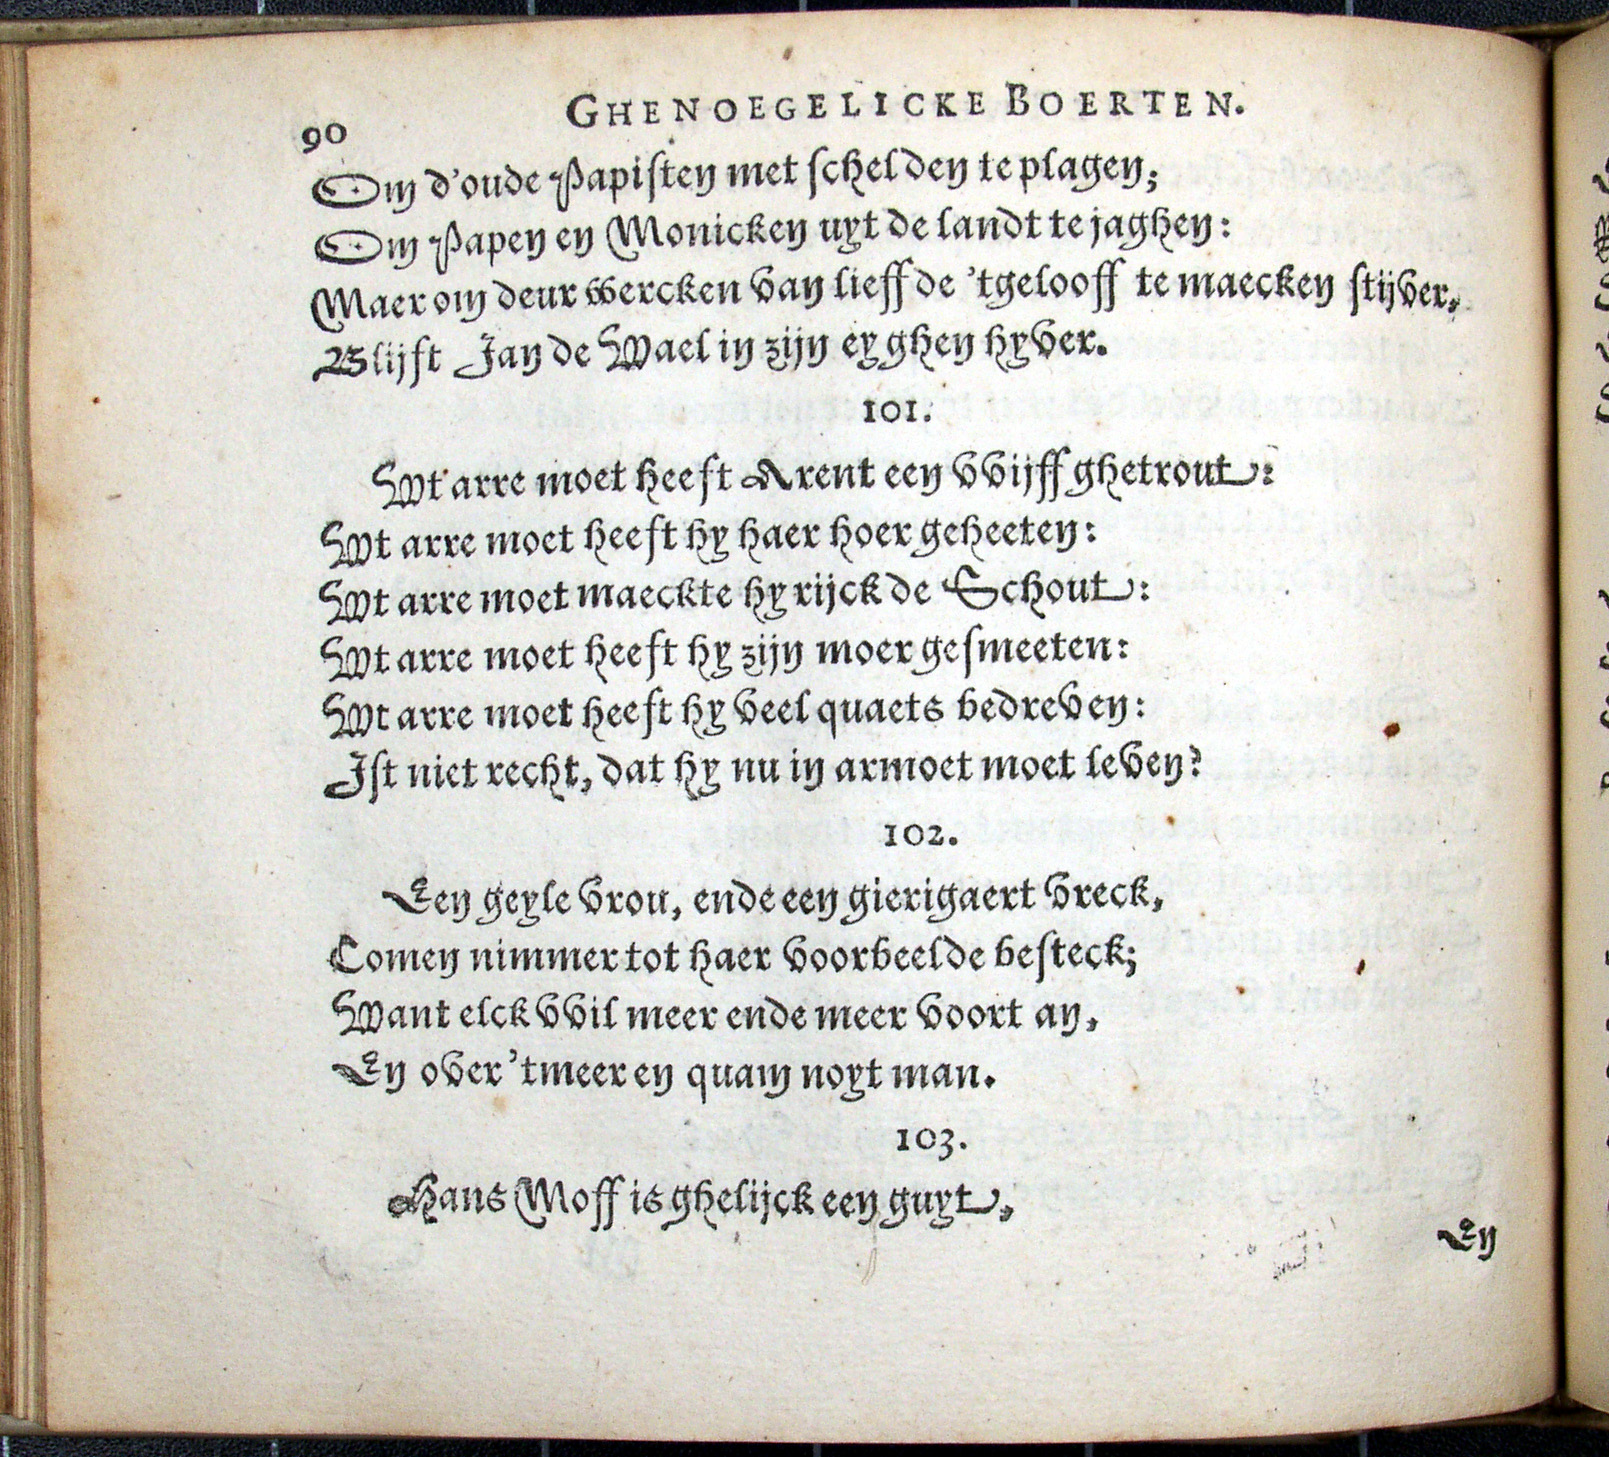 GHENOEGELICKE BOERTEN.
90
Om d'oude Papisten met schelden te plagen;
Om Papen en Monicken uyt de landt te jaghen:
Maer om deur wercken van lieffde 'tgelooff te maecken stijver,
Blijft Jan de Wael in zijn eyghen yver.
101.
Wt arre moet heeft Arent een vvijff ghetrout:
Wt arre moet heeft hy haer hoer geheeten:
Wt arre moet maeckte hy rijck de Schout:
Wt arre moet heeft hy zijn moer gesmeeten:
Wt arre moet heeft hy veel quaets bedreven:
Ist niet recht, dat hy nu in armoet moet leven?
102.
Een geyle vrou, ende een gierigaert vreck,
Comen nimmer tot haer voorbeelde besteck;
Want elck vvil meer ende meer voort an,
En over 'tmeer en quam noyt man.
103.
Hans Moff is ghelijck een guyt,
En